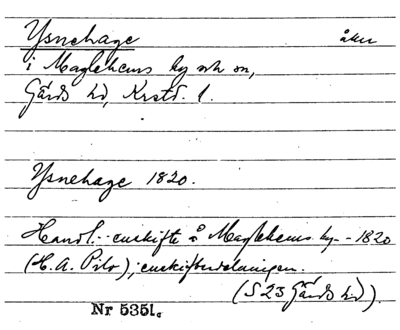 Ysnehage åker
i Maglehems by och sn,
Gärds hd, Krstd. l.
Ysnehage 1820.
Handl. enskifte å Maglehems by - 1820
(H. A.), enskiftesdelningen.
(S 23 Gärds hd).
Nr 5351.